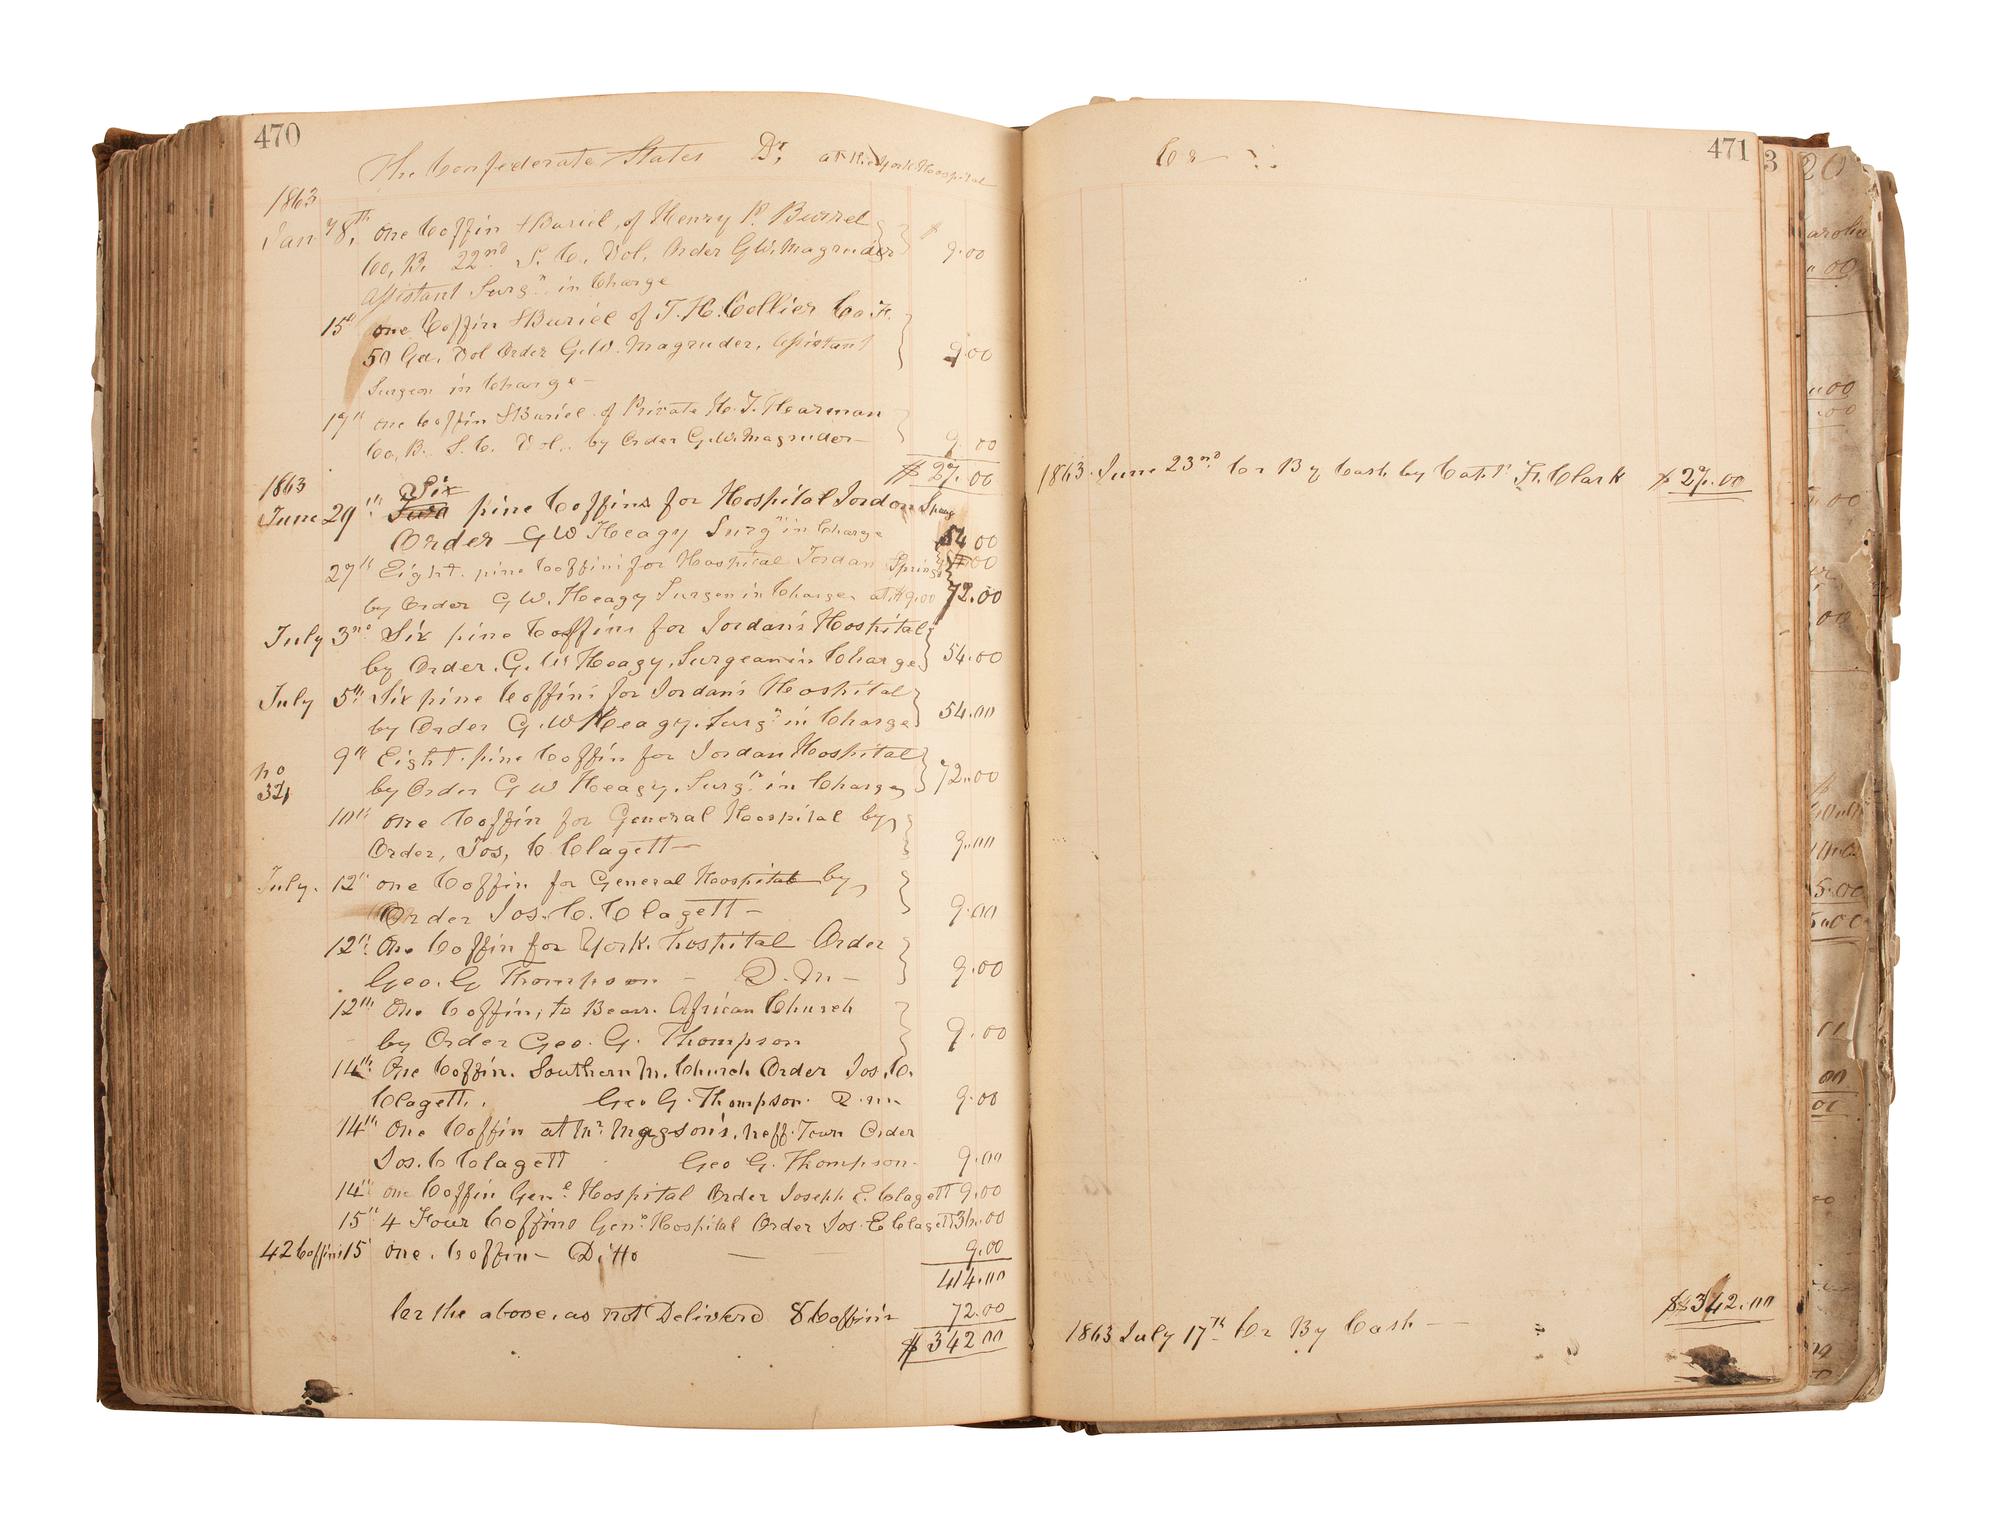 470
The Confederate States Dr, at the York Hospital
1863
Jan 8th, one Coffin & Buriel, of Henry P. Burrel
Co, K. 22nd S. C. Vol, Order G.W. Magruder $ 9.00
Assistant Surgn. in Charge
15th one Coffin & Buriel of T. H. Collier Co. H.
50 Ga. Vol Order G.W. Magruder, Assistant 9.00
Surgeon in Charge –
19" one Coffin & Buriel of Private H. T. Hearman
Co, B. S. C. Vol.. by Order G.W. Magruder – 9.00
$ 27.00
1863 Six
June 29th Two pine Coffins for Hospital Jordon Spring
Order G W Heagy Surgn in Charge 54 00
27th Eight pine Coffins for Hospital Jordan Springs
by Order G W. Heagy Surgen in Charge at $9.00 72.00
July 3rd Six pine Coffins for Jordan's Hospital
by Order. G. W Heagy, Surgean in Charge 54.00
July 5th Six pine Coffins for Jordan's Hospital
by Order G. W Heagy. Surgn in Charge 54.00
9th Eight pine Coffin for Jordan Hospital
no
32 by Order G W Heagy. Surgn. in Charge 72.00
10th one Coffin for General Hospital by
Order, Jos, C Clagett – 9.00
July. 12th one Coffin for General Hospital by,
Order Jos. C. Clagett – 9.00
12th One Coffin for York. hospital Order
Geo. G Thompson – Q. M – 9.00
12th One Coffin, to Bearr. African Church
by Order Geo. G. Thompson 9.00
14th One Coffin. Southern M. Church Order Jos. C.
Clagett. Geo G. Thompson Q. m. 9.00
14th One Coffin at Mr. Magson's. neff Town Order
Jos. C Clagett Geo G. Thompson. 9.00
14th one Coffin Genl. Hospital Order Joseph E. Clagett 9.00
15th 4 Four Coffins Genl. Hospital Order Jos. E Clagett 36.00
42 Coffins 15 one. Coffin – Ditto — 9.00
414.00
Cr the above, as not Deliverd 8 Coffin's 72.00
$ 342.00
471
Cr
1863. June 23rd. Cr By Cash by Capt. F. Clark $27.00
$342.00
1863 July 17th Cr By Cash –
3
20